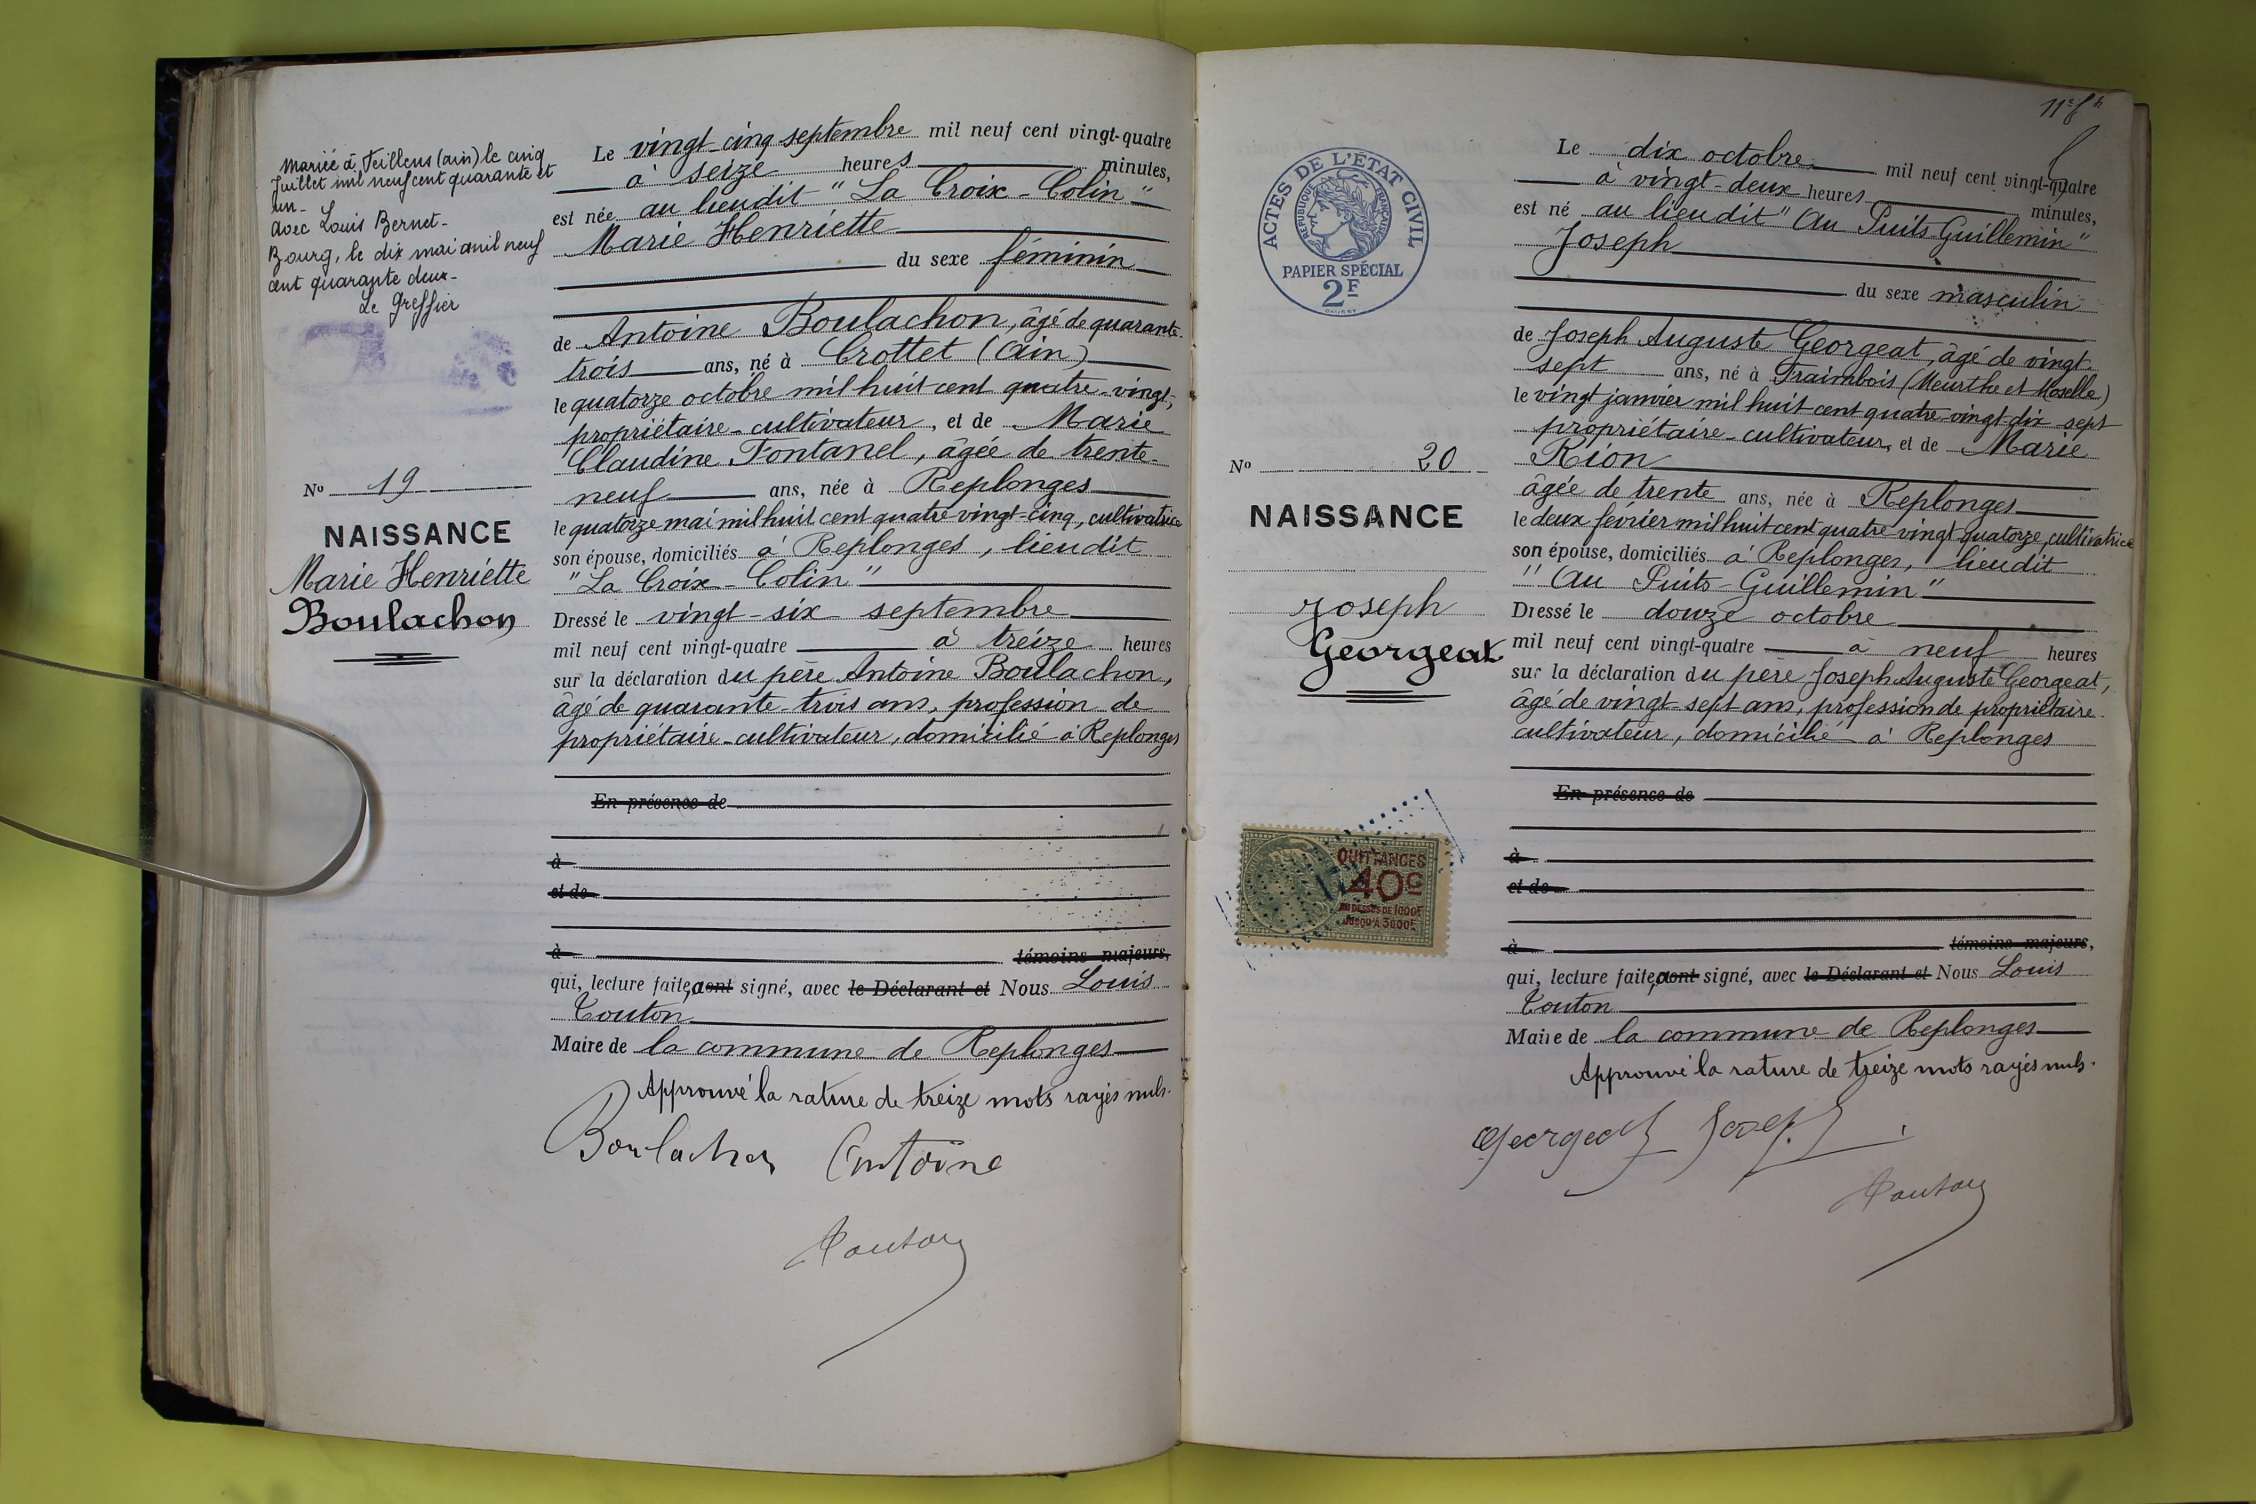 Mariée à Feillens (ain) le cinq
Juillet mil neuf cent quarante et
un-
avec Louis Bernet-
Bourg, le dix mai mil neuf
cent quarante deux-
Le Greffier
No 19
NAISSANCE
Marie Henriette
Boulachon
Le vingt-cinq septembre mil neuf cent vingt-quatre
à seize heures minutes,
est née au lieudit "La Croix-Colin"
Marie Henriette
du sexe féminin
de Antoine Boulachon, âgé de quarante-
trois ans, né à Crottet (Ain)
le quatorze octobre mil huit cent quatre-vingt,
propriétaire-cultivateur, et de Marie
Claudine Fontanel, âgée de trente-
neuf ans, née à Replonges
le quatorze mai mil huit cent quatre vingt-cinq, cultivatrice
son épouse, domiciliés à Replonges, lieudit
"La Croix-Colin"
Dressé le vingt-six septembre
mil neuf cent vingt-quatre à treize heures
sur la déclaration du père Antoine Boulachon,
âgé de quarante-trois ans, profession de
propriétaire-cultivateur, domicilié à Replonges
En présence de
à
et de
à témoins majeurs,
qui, lecture faite, aont signé, avec le Déclarant et Nous Louis
Touton
Maire de la commune de Replonges
Approuvé la rature de treize mots rayés nuls.
Boulachon Antoine
Touton
11e f
ACTES DE L'ÉTAT CIVIL
RÉPUBLIQUE FRANÇAISE
PAPIER SPÉCIAL
2F
No 20
NAISSANCE
Joseph
Georgeat
QUITTANCES
40c
AU DESSUS DE 1000F
JUSQU'À 3000F
Le dix octobre mil neuf cent vingt-quatre
à vingt-deux heures minutes,
est né au lieudit "Au Puits-Guillemin"
Joseph
du sexe masculin
de Joseph Auguste Georgeat, âgé de vingt-
sept ans, né à Fraimbois (Meurthe et Moselle)
le vingt janvier mil huit cent quatre-vingt-dix-sept
propriétaire-cultivateur, et de Marie
Rion
âgée de trente ans, née à Replonges
le deux février mil huit cent quatre vingt-quatorze, cultivatrice
son épouse, domiciliés à Replonges, lieudit
"Au Puits-Guillemin"
Dressé le douze octobre
mil neuf cent vingt-quatre à neuf heures
sur la déclaration du père Joseph Auguste Georgeat,
âgé de vingt-sept ans, profession de propriétaire
cultivateur, domicilié à Replonges
En présence de
à
et de
à témoins majeurs,
qui, lecture faite, aont signé, avec le Déclarant et Nous Louis
Touton
Maire de la commune de Replonges
Approuvé la rature de treize mots rayés nuls.
Georgeat Joseph
Touton